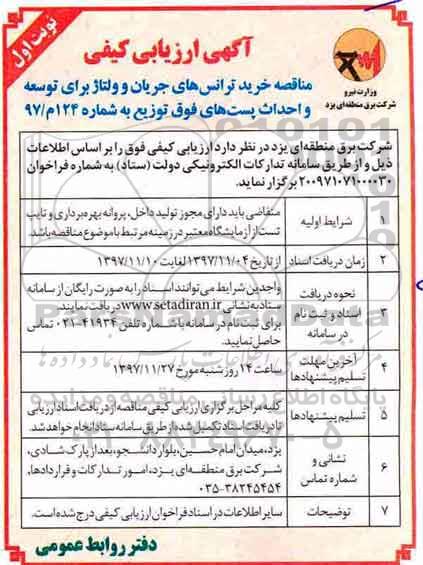 نوبت اول
آگهی ارزیابی کیفی
وزارت نیرو
شرکت برق منطقه‌ای یزد
مناقصه خرید ترانس‌های جریان و ولتاژ برای توسعه
و احداث پست‌های فوق توزیع به شماره ۱۲۴م/۹۷
شرکت برق منطقه‌ای یزد در نظر دارد ارزیابی کیفی فوق را بر اساس اطلاعات
ذیل و از طریق سامانه تدارکات الکترونیکی دولت (ستاد) به شماره فراخوان
۲۰۰۹۷۱۰۷۱۰۰۰۰۳۰ برگزار نماید.
۱ شرایط اولیه
متقاضی باید دارای مجوز تولید داخل، پروانه بهره‌برداری و تایپ
تست از آزمایشگاه معتبر در زمینه مرتبط با موضوع مناقصه باشد.
۲ زمان دریافت اسناد از تاریخ ۱۳۹۷/۱۱/۰۴ لغایت ۱۳۹۷/۱۱/۱۰
۳ نحوه دریافت
اسناد و ثبت نام
در سامانه
واجدین شرایط می‌توانند اسناد را به صورت رایگان از سامانه
ستاد به نشانی www.setadiran.ir دریافت نمایند.
برای ثبت نام در سامانه با شماره تلفن ۴۱۹۳۴-۰۲۱ تماس
حاصل نمایید.
۴ آخرین مهلت
تسلیم پیشنهادها
ساعت ۱۴ روز شنبه مورخ ۱۳۹۷/۱۱/۲۷
۵ تسلیم پیشنهادها
کلیه مراحل برگزاری ارزیابی کیفی مناقصه از دریافت اسناد ارزیابی
تا دریافت اسناد تکمیل شده از طریق سامانه ستاد انجام خواهد شد.
۶ نشانی و
شماره تماس
یزد، میدان امام حسین، بلوار دانشجو، بعد از پارک شادی،
شرکت برق منطقه‌ای یزد، امور تدارکات و قراردادها،
۰۳۵-۳۸۲۴۵۴۵۴
۷ توضیحات سایر اطلاعات در اسناد فراخوان ارزیابی کیفی درج شده است.
دفتر روابط عمومی
پایگاه اطلاع رسانی مناقصه و مزایده